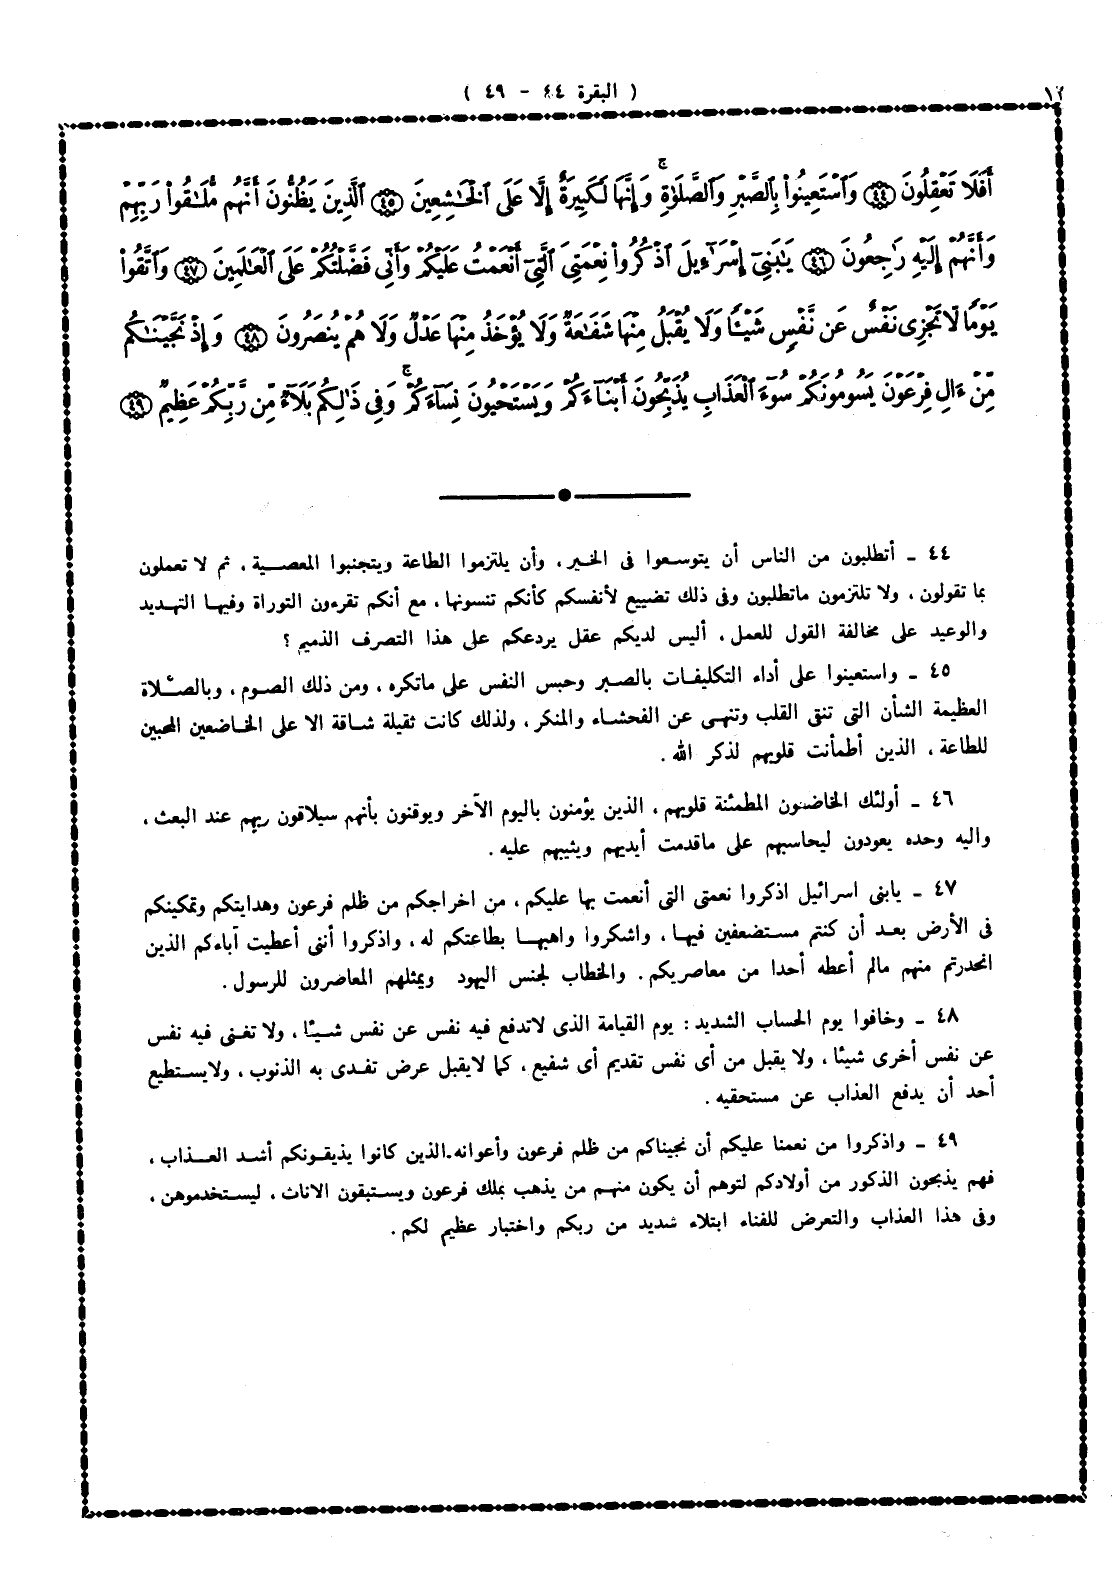 ١٢
( البقرة ٤٤ - ٤٩ )
أَفَلَا تَعْقِلُونَ ﴿٤٤﴾ وَٱسْتَعِينُوا۟ بِٱلصَّبْرِ وَٱلصَّلَوٰةِ ۚ وَإِنَّهَا لَكَبِيرَةٌ إِلَّا عَلَى ٱلْخَٰشِعِينَ ﴿٤٥﴾ ٱلَّذِينَ يَظُنُّونَ أَنَّهُم مُّلَٰقُوا۟ رَبِّهِمْ
وَأَنَّهُمْ إِلَيْهِ رَٰجِعُونَ ﴿٤٦﴾ يَٰبَنِىٓ إِسْرَٰٓءِيلَ ٱذْكُرُوا۟ نِعْمَتِىَ ٱلَّتِىٓ أَنْعَمْتُ عَلَيْكُمْ وَأَنِّى فَضَّلْتُكُمْ عَلَى ٱلْعَٰلَمِينَ ﴿٤٧﴾ وَٱتَّقُوا۟
يَوْمًا لَّا تَجْزِى نَفْسٌ عَن نَّفْسٍ شَيْـًٔا وَلَا يُقْبَلُ مِنْهَا شَفَٰعَةٌ وَلَا يُؤْخَذُ مِنْهَا عَدْلٌ وَلَا هُمْ يُنصَرُونَ ﴿٤٨﴾ وَإِذْ نَجَّيْنَٰكُم
مِّنْ ءَالِ فِرْعَوْنَ يَسُومُونَكُمْ سُوٓءَ ٱلْعَذَابِ يُذَبِّحُونَ أَبْنَآءَكُمْ وَيَسْتَحْيُونَ نِسَآءَكُمْ ۚ وَفِى ذَٰلِكُم بَلَآءٌ مِّن رَّبِّكُمْ عَظِيمٌ ﴿٤٩﴾
٤٤ ـ أتطلبون من الناس أن يتوسعوا فى الخير ، وأن يلتزموا الطاعة ويتجنبوا المعصية ، ثم لا تعملون
بما تقولون ، ولا تلتزمون ماتطلبون وفى ذلك تضييع لأنفسكم كأنكم تنسونها ، مع أنكم تقرءون التوراة وفيها التهديد
والوعيد على مخالفة القول للعمل ، أليس لديكم عقل يردعكم على هذا التصرف الذميم ؟
٤٥ ـ واستعينوا على أداء التكليفات بالصبر وحبس النفس على ماتكره ، ومن ذلك الصوم ، وبالصلاة
العظيمة الشأن التى تنقى القلب وتنهى عن الفحشاء والمنكر ، ولذلك كانت ثقيلة شاقة الا على الخاضعين المحبين
للطاعة ، الذين أطمأنت قلوبهم لذكر الله .
٤٦ ـ أولئك الخاضعون المطمئنة قلوبهم ، الذين يؤمنون باليوم الآخر ويوقنون بأنهم سيلاقون ربهم عند البعث ،
واليه وحده يعودون ليحاسبهم على ماقدمت أيديهم ويثيبهم عليه .
٤٧ ـ يابنى اسرائيل اذكروا نعمتى التى أنعمت بها عليكم ، من اخراجكم من ظلم فرعون وهدايتكم وتمكينكم
فى الأرض بعد أن كنتم مستضعفين فيها ، واشكروا واهبها بطاعتكم له ، واذكروا أننى أعطيت آباءكم الذين
انحدرتم منهم مالم أعطه أحدا من معاصريكم . والخطاب لجنس اليهود ويمثلهم المعاصرون للرسول .
٤٨ ـ وخافوا يوم الحساب الشديد : يوم القيامة الذى لاتدفع فيه نفس عن نفس شيئا ، ولا تغنى فيه نفس
عن نفس أخرى شيئا ، ولا يقبل من أى نفس تقديم أى شفيع ، كما لايقبل عرض تفدى به الذنوب ، ولايستطيع
أحد أن يدفع العذاب عن مستحقيه .
٤٩ ـ واذكروا من نعمنا عليكم أن نجيناكم من ظلم فرعون وأعوانه.الذين كانوا يذيقونكم أشد العذاب ،
فهم يذبحون الذكور من أولادكم لتوهم أن يكون منهم من يذهب بملك فرعون ويستبقون الاناث ، ليستخدموهن ،
وفى هذا العذاب والتعرض للفناء ابتلاء شديد من ربكم واختبار عظيم لكم .